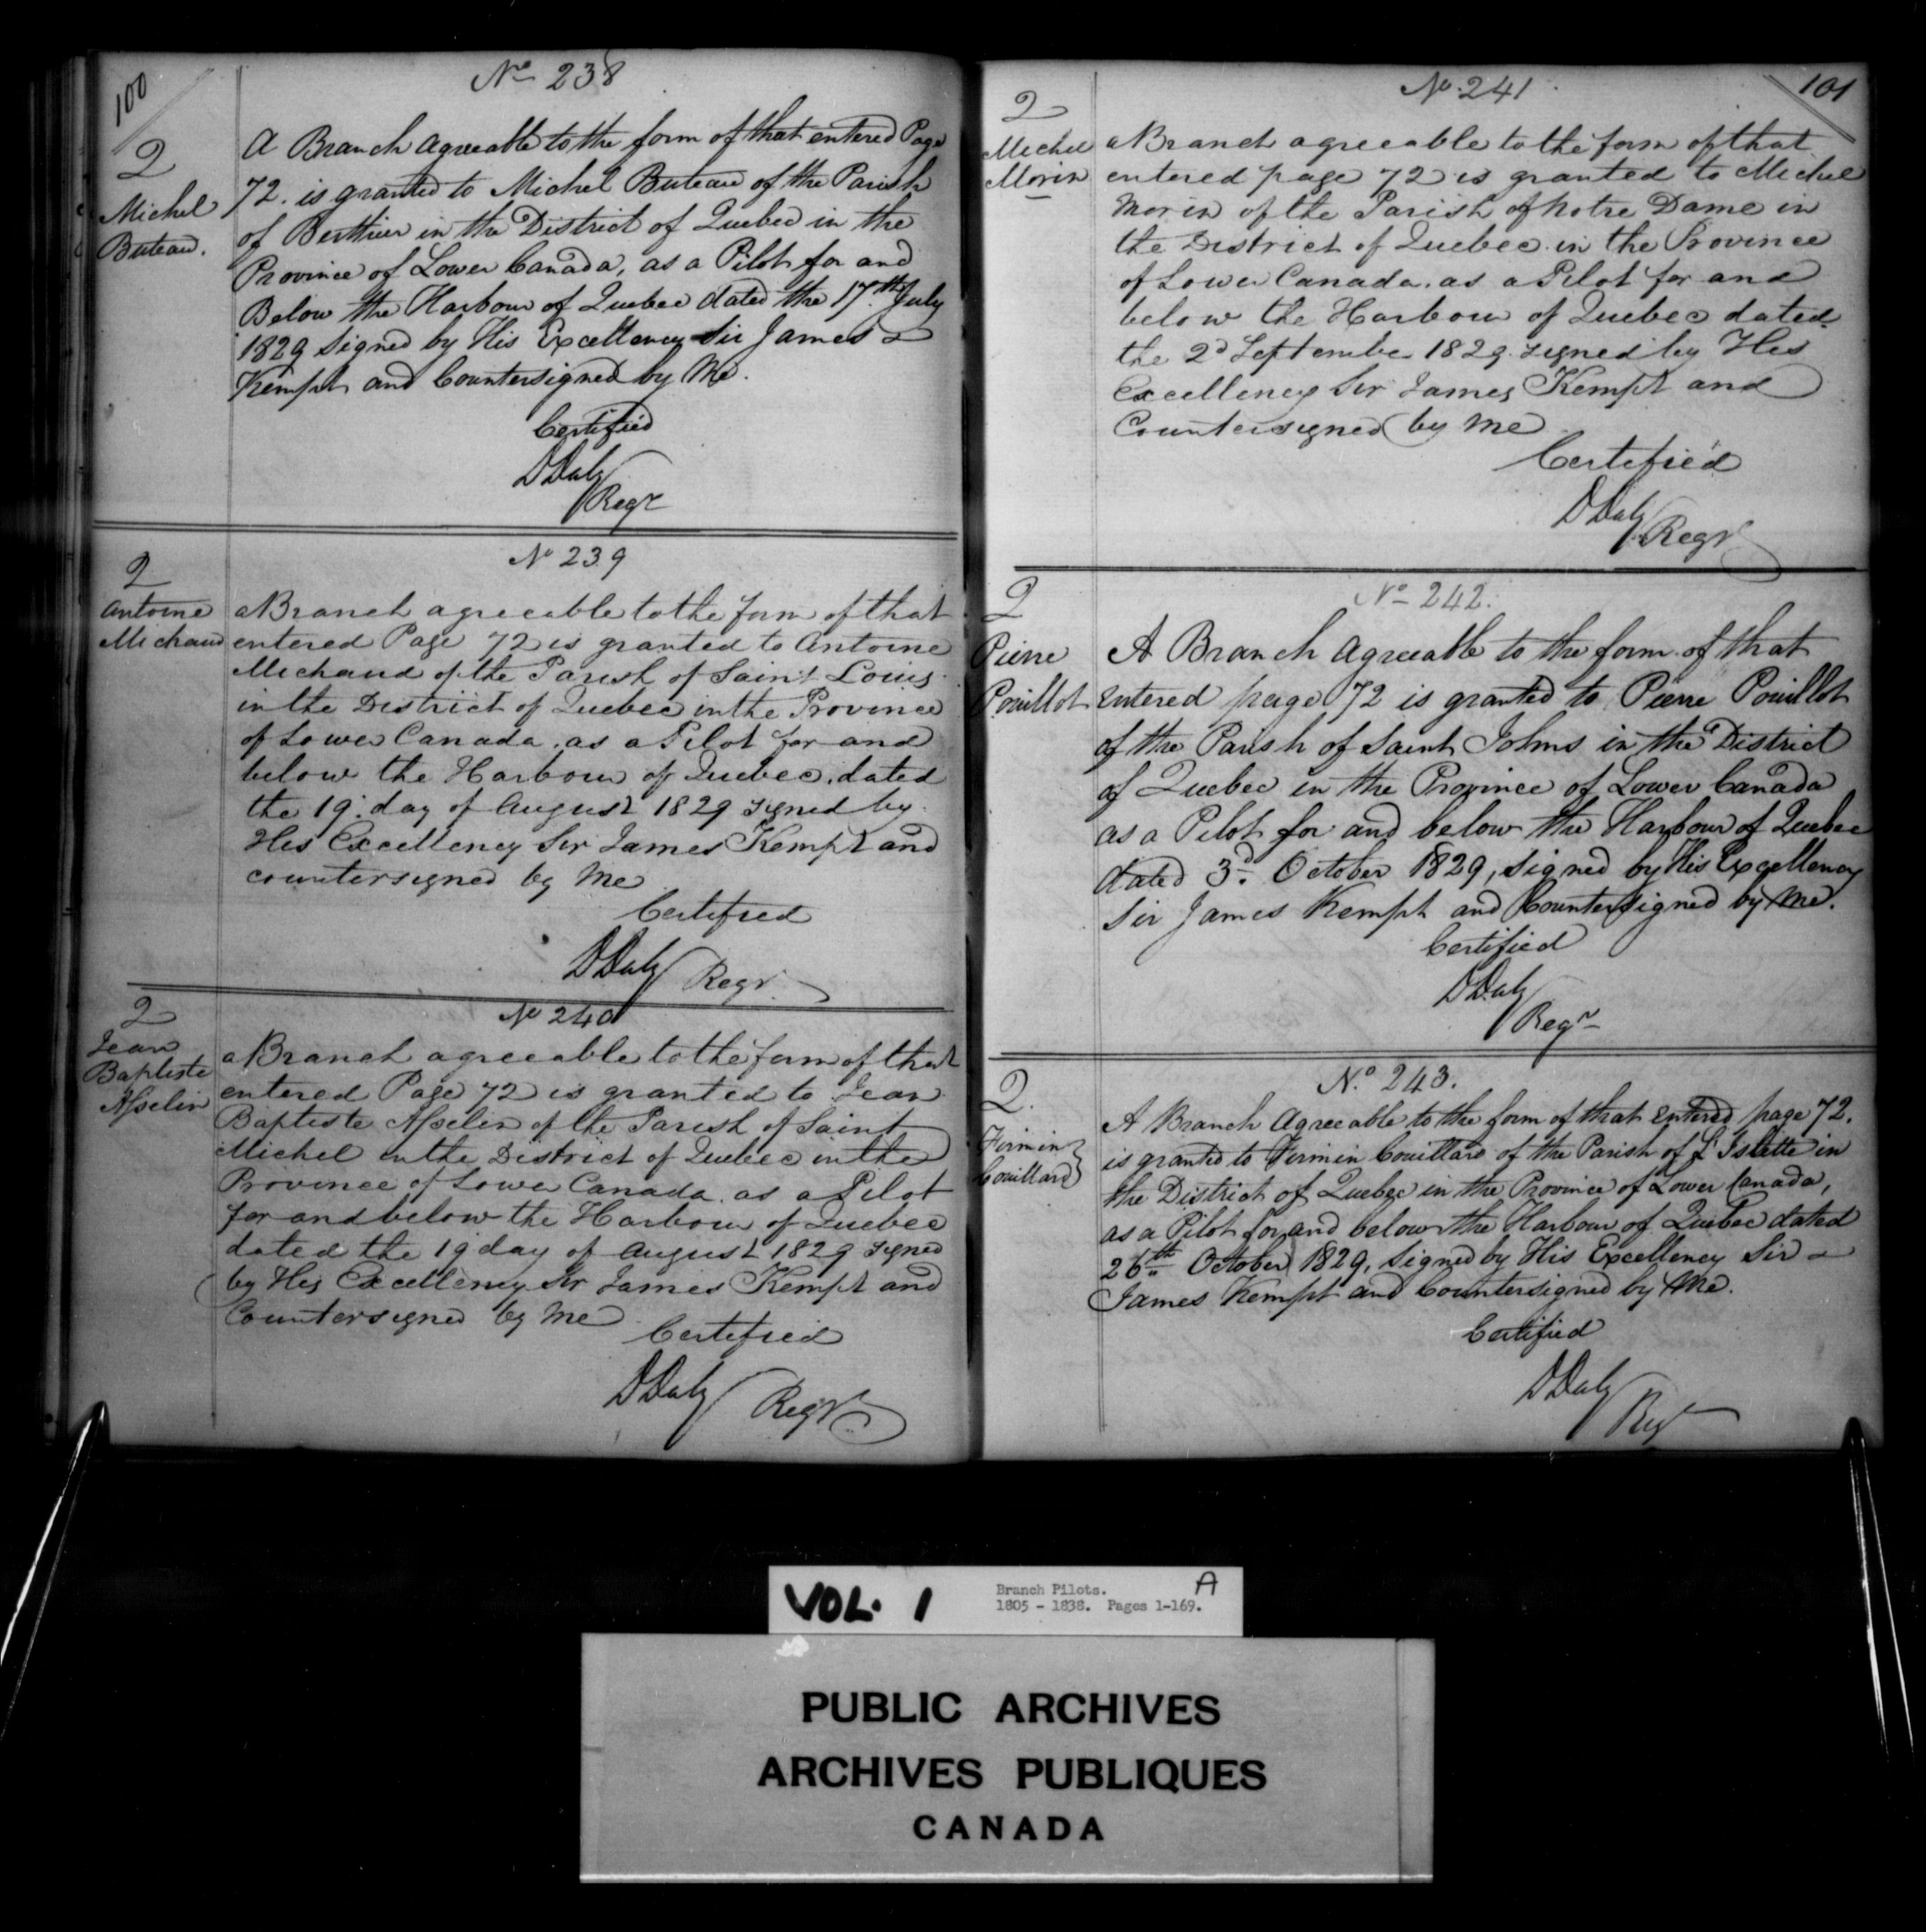 100
No 238
2
Michel
Buteau.
A Branch agreeable to the form of that entered Page
72. is granted to Michel Buteau of the Parish
of Berthier in the District of Quebec in the
Province of Lower Canada, as a Pilot for and
Below the Harbour of Quebec dated the 17th July
1829 Signed by His Excellency Sir James
Kempt and Countersigned by Me.
Certified
DDaly
Regr
No 239
2
Antoine
Michaud
a Branch agreeable to the form of that
entered Page 72 is granted to Antoine
Michaud of the Parish of Saint Louis
in the District of Quebec in the Province
of Lower Canada, as a Pilot for and
below the Harbour of Quebec, dated
the 19. day of August 1829 signed by
His Excellency Sir James Kempt and
countersigned by Me
Certified
DDaly Regr
No 240
2
Jean
Baptiste
Asselin
a Branch agreeable to the form of that
entered Page 72 is granted to Jean
Baptiste Asselin of the Parish of Saint
Michel in the District of Quebec in the
Province of Lower Canada. as a Pilot
for and below the Harbour of Quebec
dated the 19 day of August 1829 signed
by His Excellency Sir James Kempt and
Countersigned by Me
Certified
DDaly Regr
101
No. 241
2
Michel
Morin
a Branch agreeable to the form of that
entered page 72 is granted to Michel
Morin of the Parish of Notre Dame in
the District of Quebec in the Province
of Lower Canada. as a Pilot for and
below the Harbour of Quebec dated
the 2d September 1829 signed by His
Excellency Sir James Kempt and
Countersigned by Me
Certified
DDaly
Regr
No 242.
2
Pierre
Pouillot
A Branch Agreeable to the form of that
entered page 72 is granted to Pierre Pouillot
of the Parish of Saint Johns in the District
of Quebec in the Province of Lower Canada
as a Pilot for and below the Harbour of Quebec
dated 3d. October 1829, signed by His Excellency
Sir James Kempt and Countersigned by Me.
Certified
DDaly
Regr
No. 243.
2.
Firmin
Couillard
A Branch Agreeable to the form of that Entered page 72.
is granted to Firmin Couillard of the Parish of L'Islette in
the District of Quebec in the Province of Lower Canada,
as a Pilot for and below the Harbour of Quebec dated
26th October 1829, signed by His Excellency Sir
James Kempt and Countersigned by Me.
Certified
DDaly
Regr
VOL. 1
Branch Pilots. A
1805 - 1838. Pages 1-169.
PUBLIC ARCHIVES
ARCHIVES PUBLIQUES
CANADA